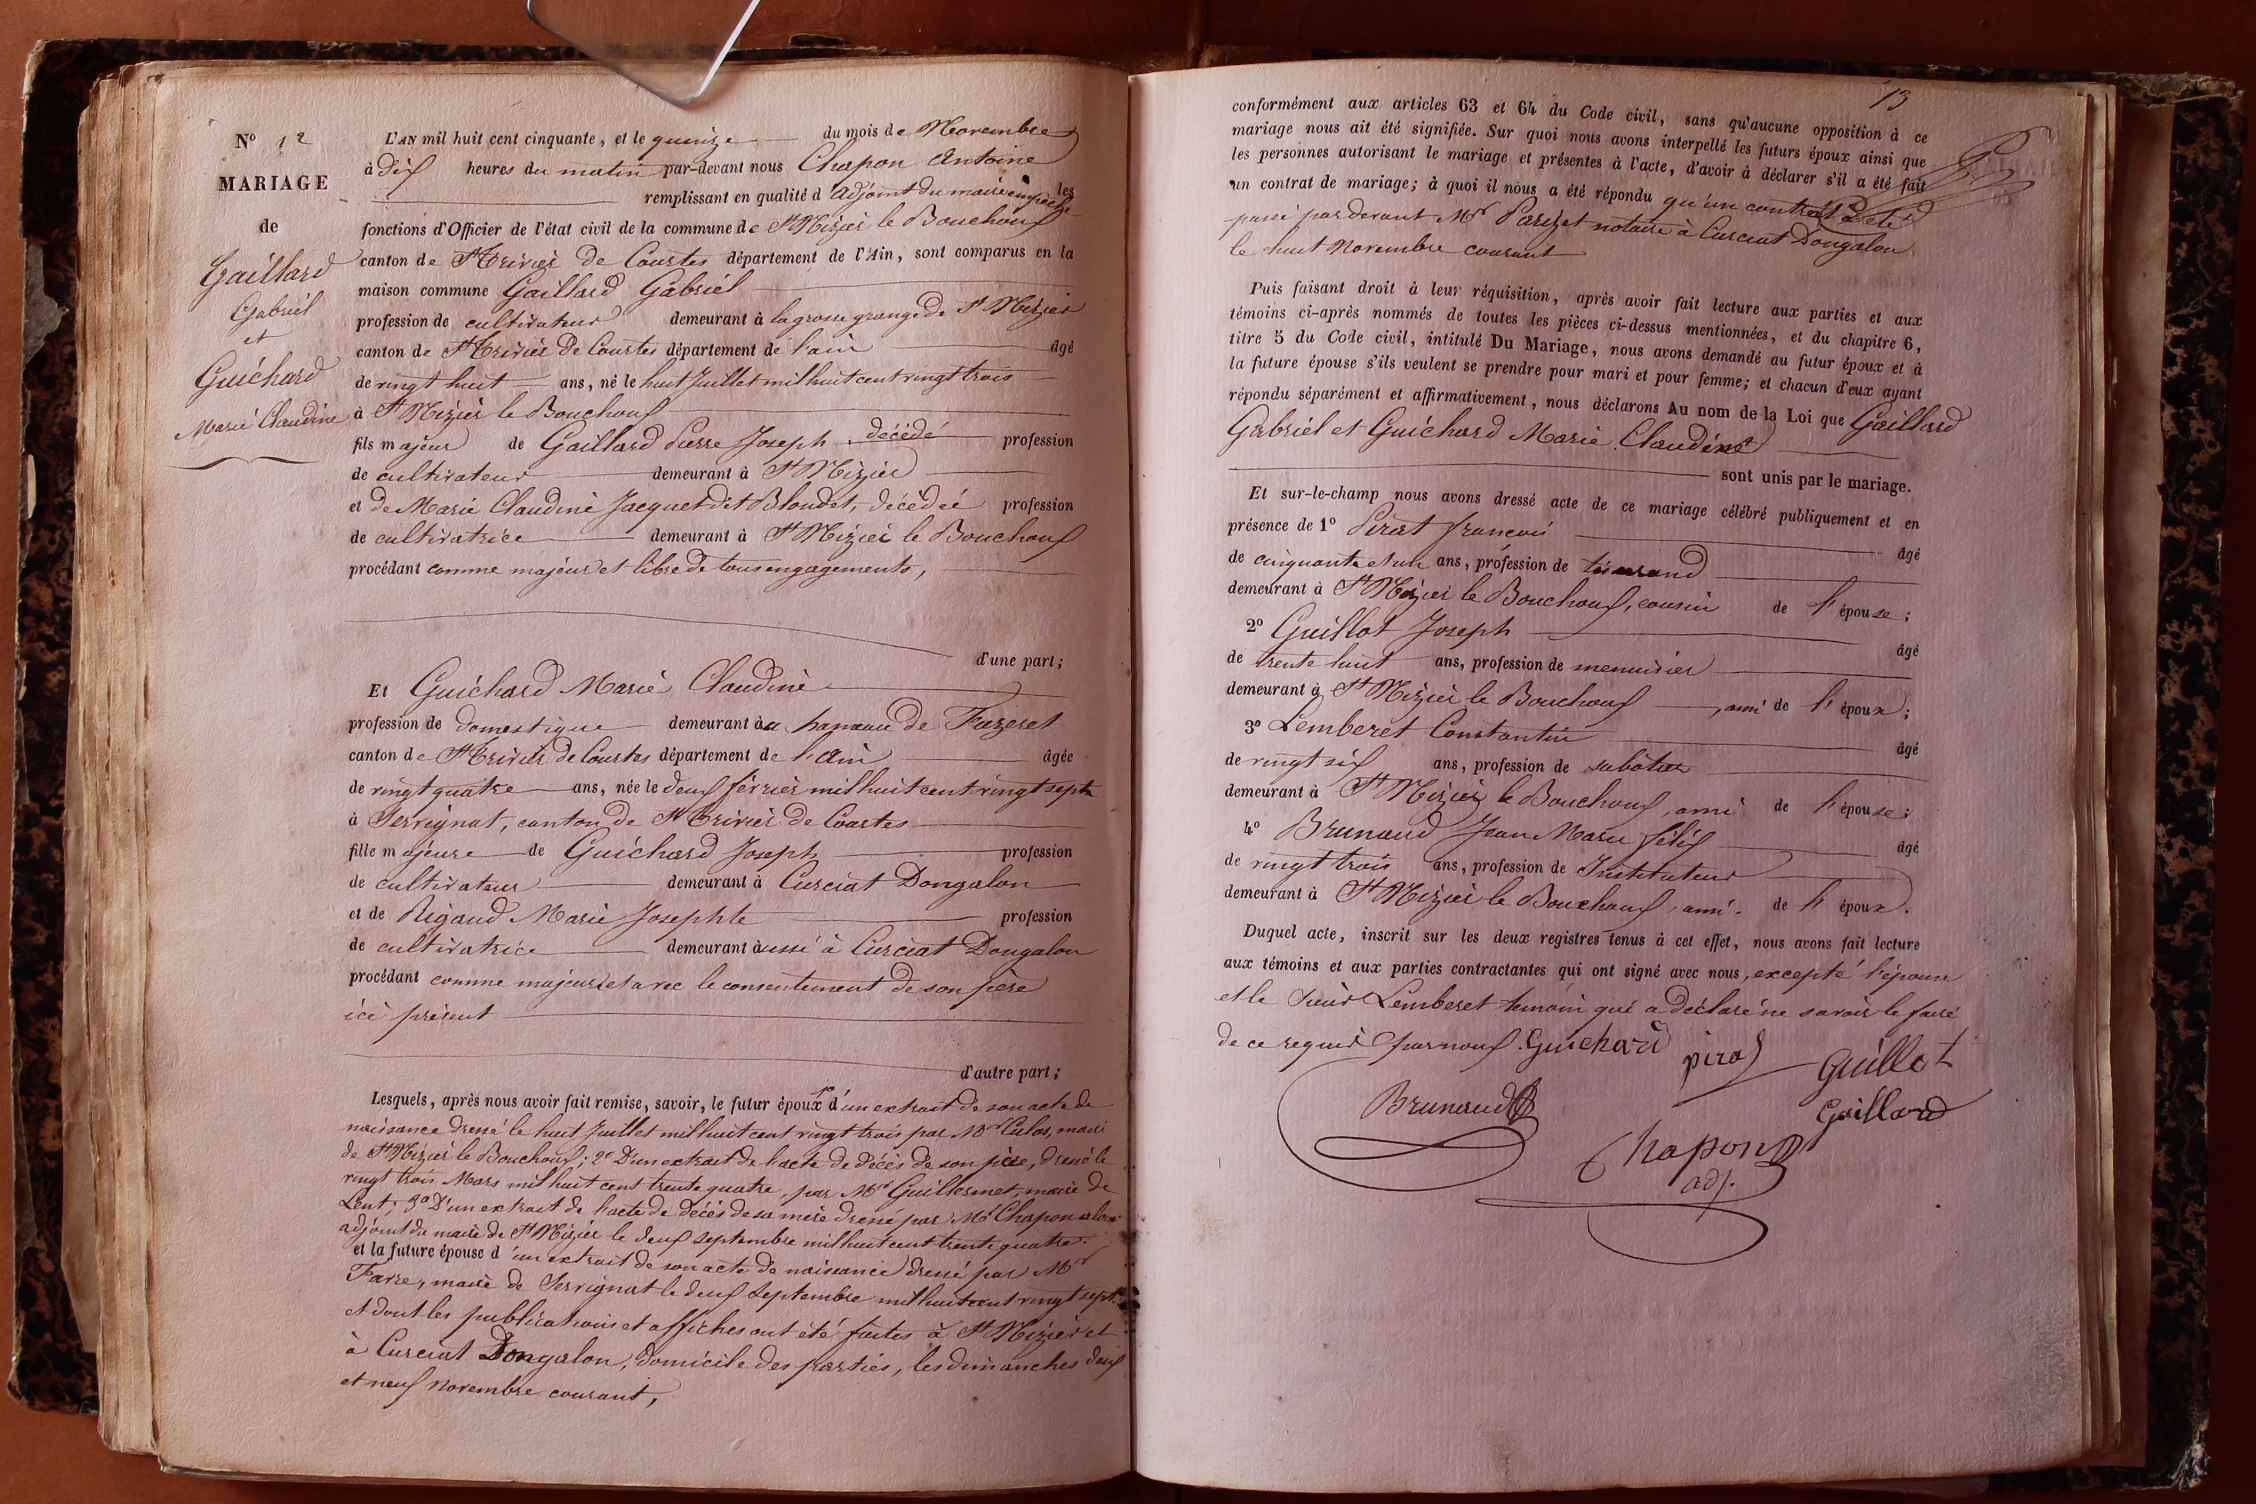 N° 12
MARIAGE
de
Gaillard
Gabriel
et
Guichard
Marie Claudine
L'AN mil huit cent cinquante, et le quinze du mois de Novembre
à dix heures du matin par-devant nous Chapon Antoine
remplissant en qualité d'adjoint du maire empêché les
fonctions d'Officier de l'état civil de la commune de St Nizier le Bouchoux
canton de St Trivier de Courtes département de l'Ain, sont comparus en la
maison commune Gaillard Gabriel
profession de cultivateur demeurant à la grosse grange de St Nizier
canton de St Trivier de Courtes département de l'ain âgé
de vingt huit ans, né le huit Juillet mil huit cent vingt trois
à St Nizier le Bouchoux
fils majeur de Gaillard Pierre Joseph décédé profession
de cultivateur demeurant à St Nizier
et de Marie Claudine Jacquet dit Blondet, décédée profession
de cultivatrice demeurant à St Nizier le Bouchoux
procédant comme majeur et libre de tous engagements,
d'une part;
Et Guichard Marie Claudine
profession de domestique demeurant au hameau de
canton de St Trivier de Courtes département de l'Ain âgée
de vingt quatre ans, née le deux février mil huit cent vingt sept
à Servignat, canton de St Trivier de Courtes
fille majeure de Guichard Joseph profession
de cultivateur demeurant à Curciat Dongalon
et de Rigaud Marie Josephte profession
de cultivatrice demeurant aussi à Curciat Dongalon
procédant comme majeure et avec le consentement de son père
ici présent
d'autre part;
Lesquels, après nous avoir fait remise, savoir, le futur époux 1° d'un extrait de son acte de
naissance dressé le huit Juillet mil huit cent vingt trois par Mr maire
de St Nizier le Bouchoux; 2° D'un extrait de l'acte de décès de son père, dressé le
vingt trois Mars mil huit cent trente quatre, par Mr Guillermet, maire de
Lent; 3° D'un extrait de l'acte de décès de sa mère dressé par Mr Chapon alors
adjoint du maire de St Nizier le deux septembre mil huit cent trente quatre.
et la future épouse d'un extrait de son acte de naissance dressé par Mr
maire de Servignat le deux Septembre mil huit cent vingt sept
et dont les publications et affiches ont été faites à St Nizier et
à Curciat Dongalon, domicile des parties, les dimanches deux
et neuf Novembre courant,
13
conformément aux articles 63 et 64 du Code civil, sans qu'aucune opposition à ce
mariage nous ait été signifiée. Sur quoi nous avons interpellé les futurs époux ainsi que
les personnes autorisant le mariage et présentes à l'acte, d'avoir à déclarer s'il a été fait
un contrat de mariage; à quoi il nous a été répondu qu'un contrat a été
passé par devant Mr Parizet notaire à Curciat Dongalon
le huit Novembre courant
Puis faisant droit à leur réquisition, après avoir fait lecture aux parties et aux
témoins ci-après nommés de toutes les pièces ci-dessus mentionnées, et du chapitre 6,
titre 5 du Code civil, intitulé Du Mariage, nous avons demandé au futur époux et à
la future épouse s'ils veulent se prendre pour mari et pour femme; et chacun d'eux ayant
répondu séparément et affirmativement, nous déclarons Au nom de la Loi que Gaillard
Gabriel et Guichard Marie Claudine
sont unis par le mariage.
Et sur-le-champ nous avons dressé acte de ce mariage célébré publiquement et en
présence de 1° Pirat françois âgé
de cinquante et un ans, profession de tisserand
demeurant à St Nizier le Bouchoux, cousin de l'épouse;
2° Guillot Joseph âgé
de trente huit ans, profession de menuisier
demeurant à St Nizier le Bouchoux, ami de l'époux;
3° Lemberet Constantin âgé
de vingt six ans, profession de sabotier
demeurant à St Nizier le Bouchoux, ami de l'épouse;
4° Brunaud Jean Marie félix âgé
de vingt trois ans, profession de Instituteur
demeurant à St Nizier le Bouchoux, ami de l'époux.
Duquel acte, inscrit sur les deux registres tenus à cet effet, nous avons fait lecture
aux témoins et aux parties contractantes qui ont signé avec nous, excepté l'épouse
et le sieur Lemberet témoin qui a déclaré ne savoir le faire
de ce requis par nous. Guichard pirat Guillot
Brunaud Gaillard
Chapon
adj.